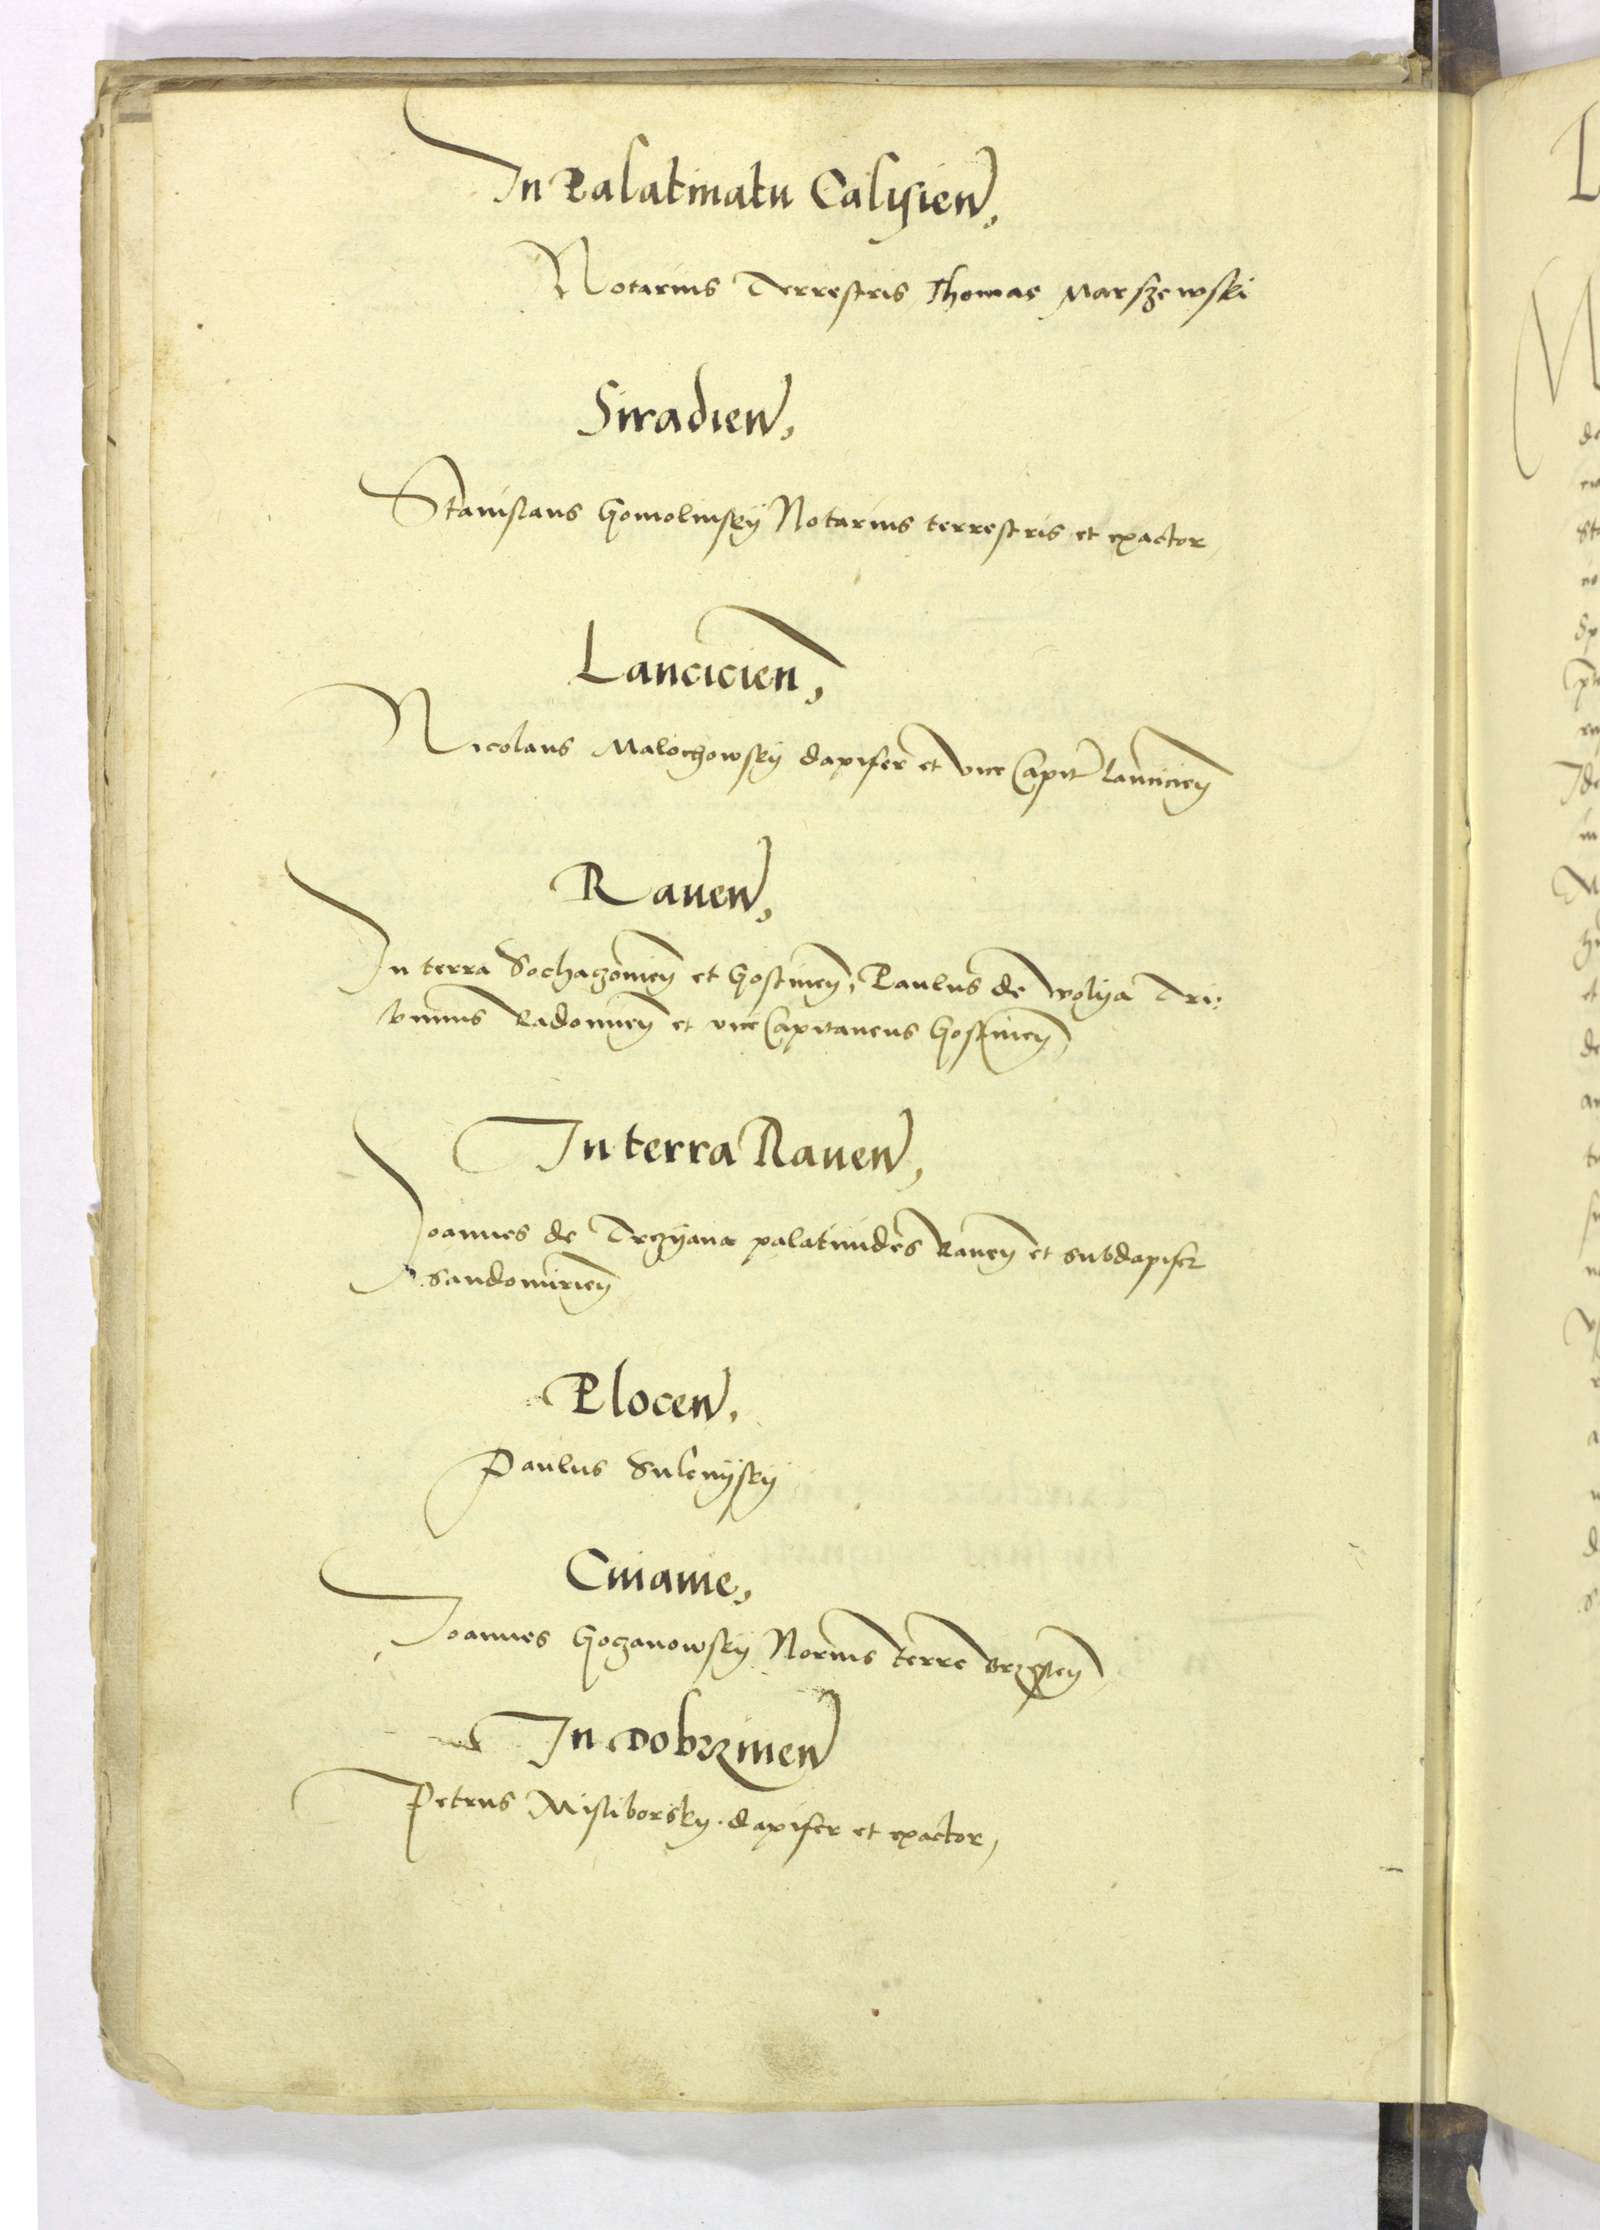 In Palatinatu Calisien,
Notarius Terrestris Thomas Marszewski
Siradien,
Stanislaus Gomolinsky Notarius terrestris et exactor,
Lancicien,
Nicolaus Malochowsky dapifer et vice Capit Lancicien
Raven,
In terra Sochaczovien et Gostinen, Paulus de Wolya Tri-
bunus Radomien et vice Capitaneus Gostinen,
In terra Raven,
Joannes de Trczyana palatinides Raven et subdapifer
Sandomirien
Plocen,
Paulus Sulenysky
Cuiavie,
Joannes Goczanowsky Norius terre Brzesten,
In Dobrzinen
Petrus Misliborsky dapifer et exactor,